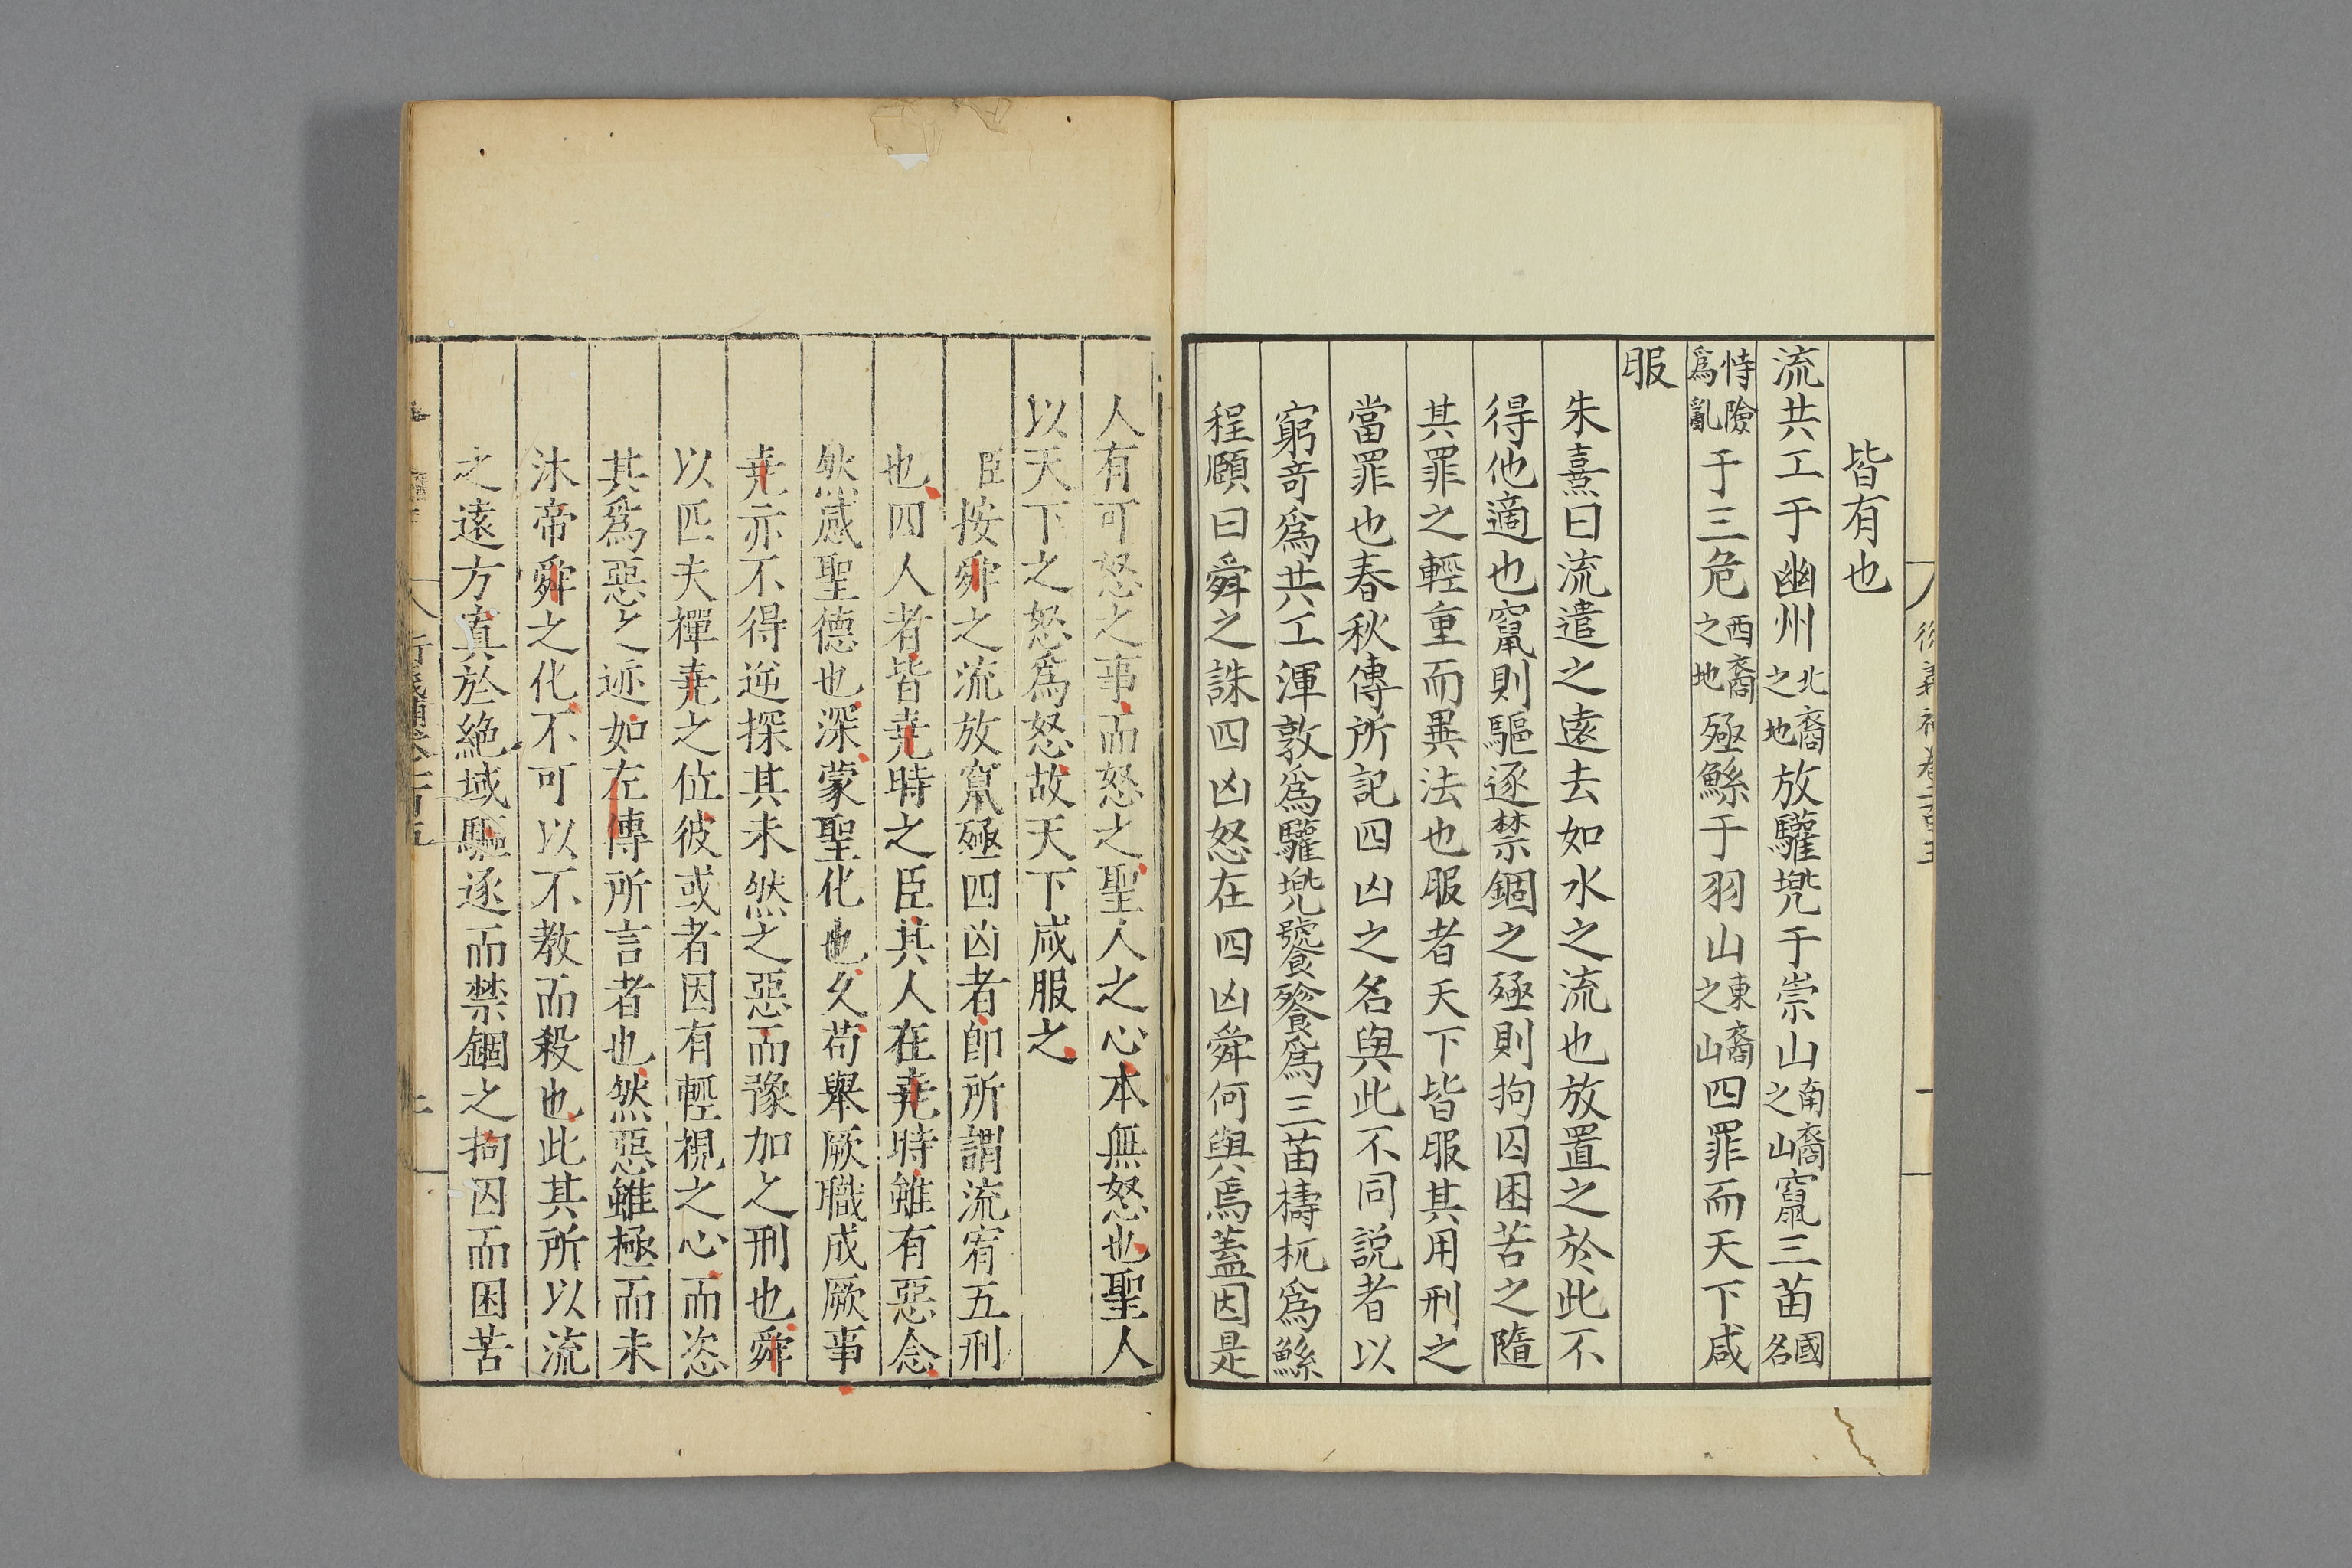 皆有也
流共工于幽州北裔之地放驩兠于崇山南裔之山竄三苗國名
恃險爲亂于三危西裔之地殛鯀于羽山東裔之山四罪而天下咸
服
朱熹曰流遣之遠去如水之流也放置之於此不
得他適也竄則驅逐禁錮之殛則拘囚困苦之隨
其罪之輕重而異法也服者天下皆服其用刑之
當罪也春秋傳所記四凶之名與此不同説者以
窮竒爲共工渾敦爲驩兠饕餮爲三苗檮杌爲鯀
程頥曰舜之誅四凶怒在四凶舜何與焉蓋因是
人有可怒之事而怒之聖人之心本無怒也聖人
以天下之怒爲怒故天下咸服之
臣按舜之流放竄殛四凶者即所謂流宥五刑
也四人者皆堯時之臣其人在堯時雖有惡念
然感聖德也深蒙聖化也久苟舉厥職成厥事
堯亦不得逆探其未然之惡而豫加之刑也舜
以匹夫禪堯之位彼或者因有輕視之心而恣
其爲惡之迹如左傳所言者也然惡雖極而未
沐帝舜之化不可以不教而殺也此其所以流
之遠方寘於絶域驅逐而禁錮之拘囚而困苦